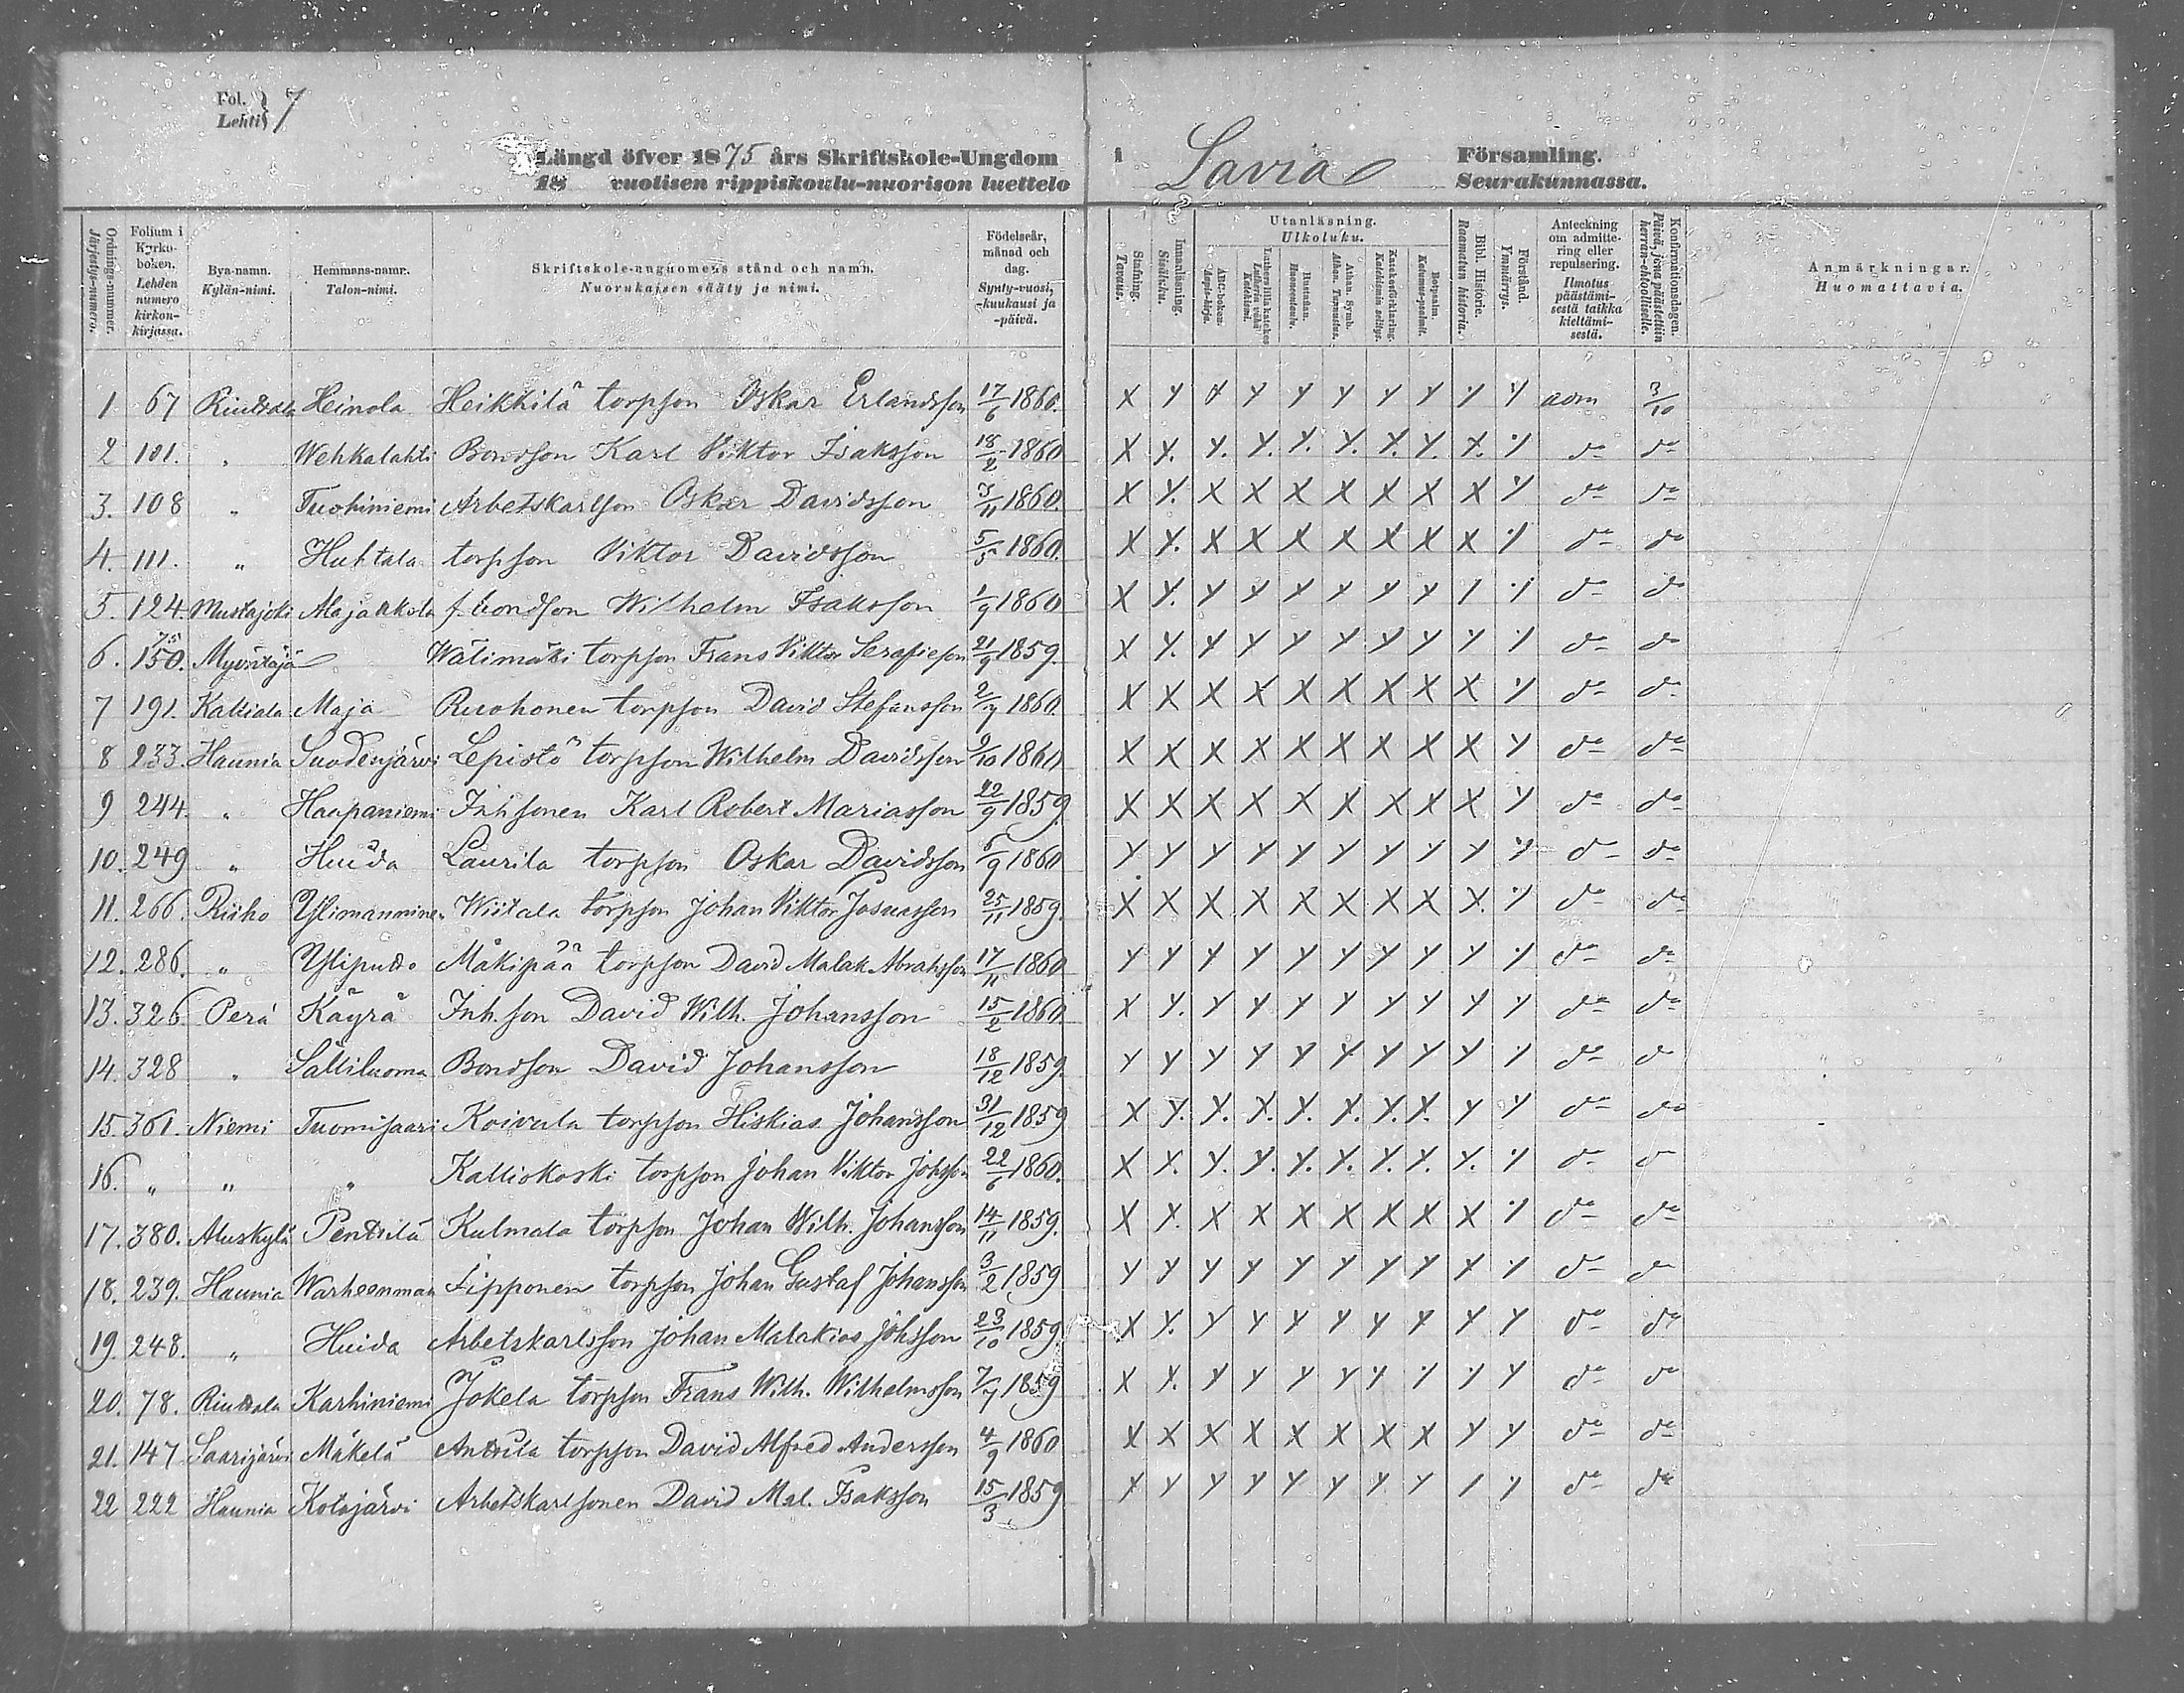 Fol. } 7
Lehti
Längd öfver 1875 års Skriftskole-Ungdom i Lavia Församling.
18 vuotisen rippiskoulu-nuorison luettelo Seurakunnassa.
Ordnings-nummer. Järjestys-numero.
Folium i Kyrko-boken. Lehden numero kirkon-kirjassa.
Bya-namn. Kylän-nimi.
Hemmans-namn. Talon-nimi.
Skriftskole-ungdomens stånd och namn. Nuorukaisen sääty ja nimi.
Födelseår, månad och dag. Synty-vuosi, -kuukausi ja -päivä.
Stafning. Tavaus.
Innanläsning. Sisäluku.
Utanläsning. Ulkoluku.
ABC-boken. Aapis-kirja.
Luthers lilla katekes Lutherin vähä Katekismi.
Hustaflan. Huoneentaulu.
Athan. Symb. Athan. Tunnustus.
Katekesförklaring. Katekismin selitys.
Botpsalm. Katumus-psalmit.
Bibl. Historie. Raamatun historia.
Förstånd. Ymmärrys.
Anteckning om admittering eller repulsering. Ilmotus päästämisestä taikka kieltämisestä.
Konfirmationsdagen. Päivä, jona päästettiin herran-ehtoolliselle.
Anmärkningar. Huomattavia.
1 67 Riuttala Heinola Heikkilä torpson Oskar Erlandsson 17/6 1860. X Y Y Y Y Y Y Y Y Y adm 3/10
2 101. " Wehkalahti Bondson Karl Viktor Isaksson 18/2 1860 X Y. Y. Y. Y. Y. Y. Y. Y. Y do do
3. 108 " Tuohiniemi Arbetskarlson Oskar Davidsson 3/11 1860. X Y. X X X X X X X Y do do
4. 111. " Huhtala torpson Viktor Davidsson 5/5 1860. X Y. X X X X X X X Y do do
5. 124. Mustajoki Majakkola f. bondson Wilhelm Isaksson 1/9 1860 X Y. Y Y Y Y Y Y Y Y do do
6. 150. Myöntäjä Wälimäki torpson Frans Viktor Serafieson 21/9 1859. X Y. Y Y Y Y Y Y Y Y do do
7 191. Kalliala Maja Ruohonen torpson David Stefansson 2/7 1860. X X X X X X X X X Y do do
8 233. Haunia Suodenjärvi Lepistö torpson Wilhelm Davidsson 9/10 1860 X X X X X X X X X Y do do
9 244. " Haapaniemi Inhsonen Karl Robert Mariasson 22/9 1859. X X X X X X X X X Y do do
10. 249 " Huida Laurila torpson Oskar Davidsson 6/9 1860 Y Y Y Y Y Y Y Y Y Y do do
11. 266. Riiho Ylimanninen Wiitala torpson Johan Viktor Josuasson 25/11 1859. X X X X X X X X X. Y do do
12. 286. " Yliputto Mäkipää torpson David Malak. Abrahsson 17/11 1860 Y Y Y Y Y Y Y Y Y Y do do
13. 326. Perä Käyrä Inh.son David Wilh. Johansson 15/2 1860. X Y. Y Y Y Y Y Y Y Y do do
14. 328 " Sältiluoma Bondson David Johansson 18/12 1859. Y Y Y Y Y Y Y Y Y Y do do
15. 361. Niemi Tuomisaari Koivula torpson Hiskias Johansson 31/12 1859 X Y. Y. Y. Y. Y. Y. Y. Y Y do do
16. " " " Kalliokoski torpson Johan Viktor Johsson 22/6 1860. X X. Y. Y. Y. Y. Y. Y. Y. Y do do
17. 380. Aluskylä Penttilä Kulmala torpson Johan Wilh. Johansson 14/11 1859. X X. X X X X X X X Y do do
18. 239. Haunia Warheenmaa Lipponen torpson Johan Gustaf Johansson 3/2 1859 Y Y Y Y Y Y Y Y Y Y do do
19. 248. " Huida Arbetskarlsson Johan Malakias Johsson 23/10 1859. X Y. Y Y Y Y Y Y Y Y do do
20. 78. Riuttala Karhiniemi Jokela torpson Frans Wilh. Wilhelmsson 7/7 1859 X X. Y Y Y Y Y Y Y Y do do
21. 147 Saarijärvi Mäkelä Anttila torpson David Alfred Andersson 4/9 1860 X X X X X X X X Y Y do do
22 222 Haunia Kotojärvi Arbetskarlsonen David Mal. Isaksson 15/3 1859 Y Y Y Y Y Y Y Y Y Y do do